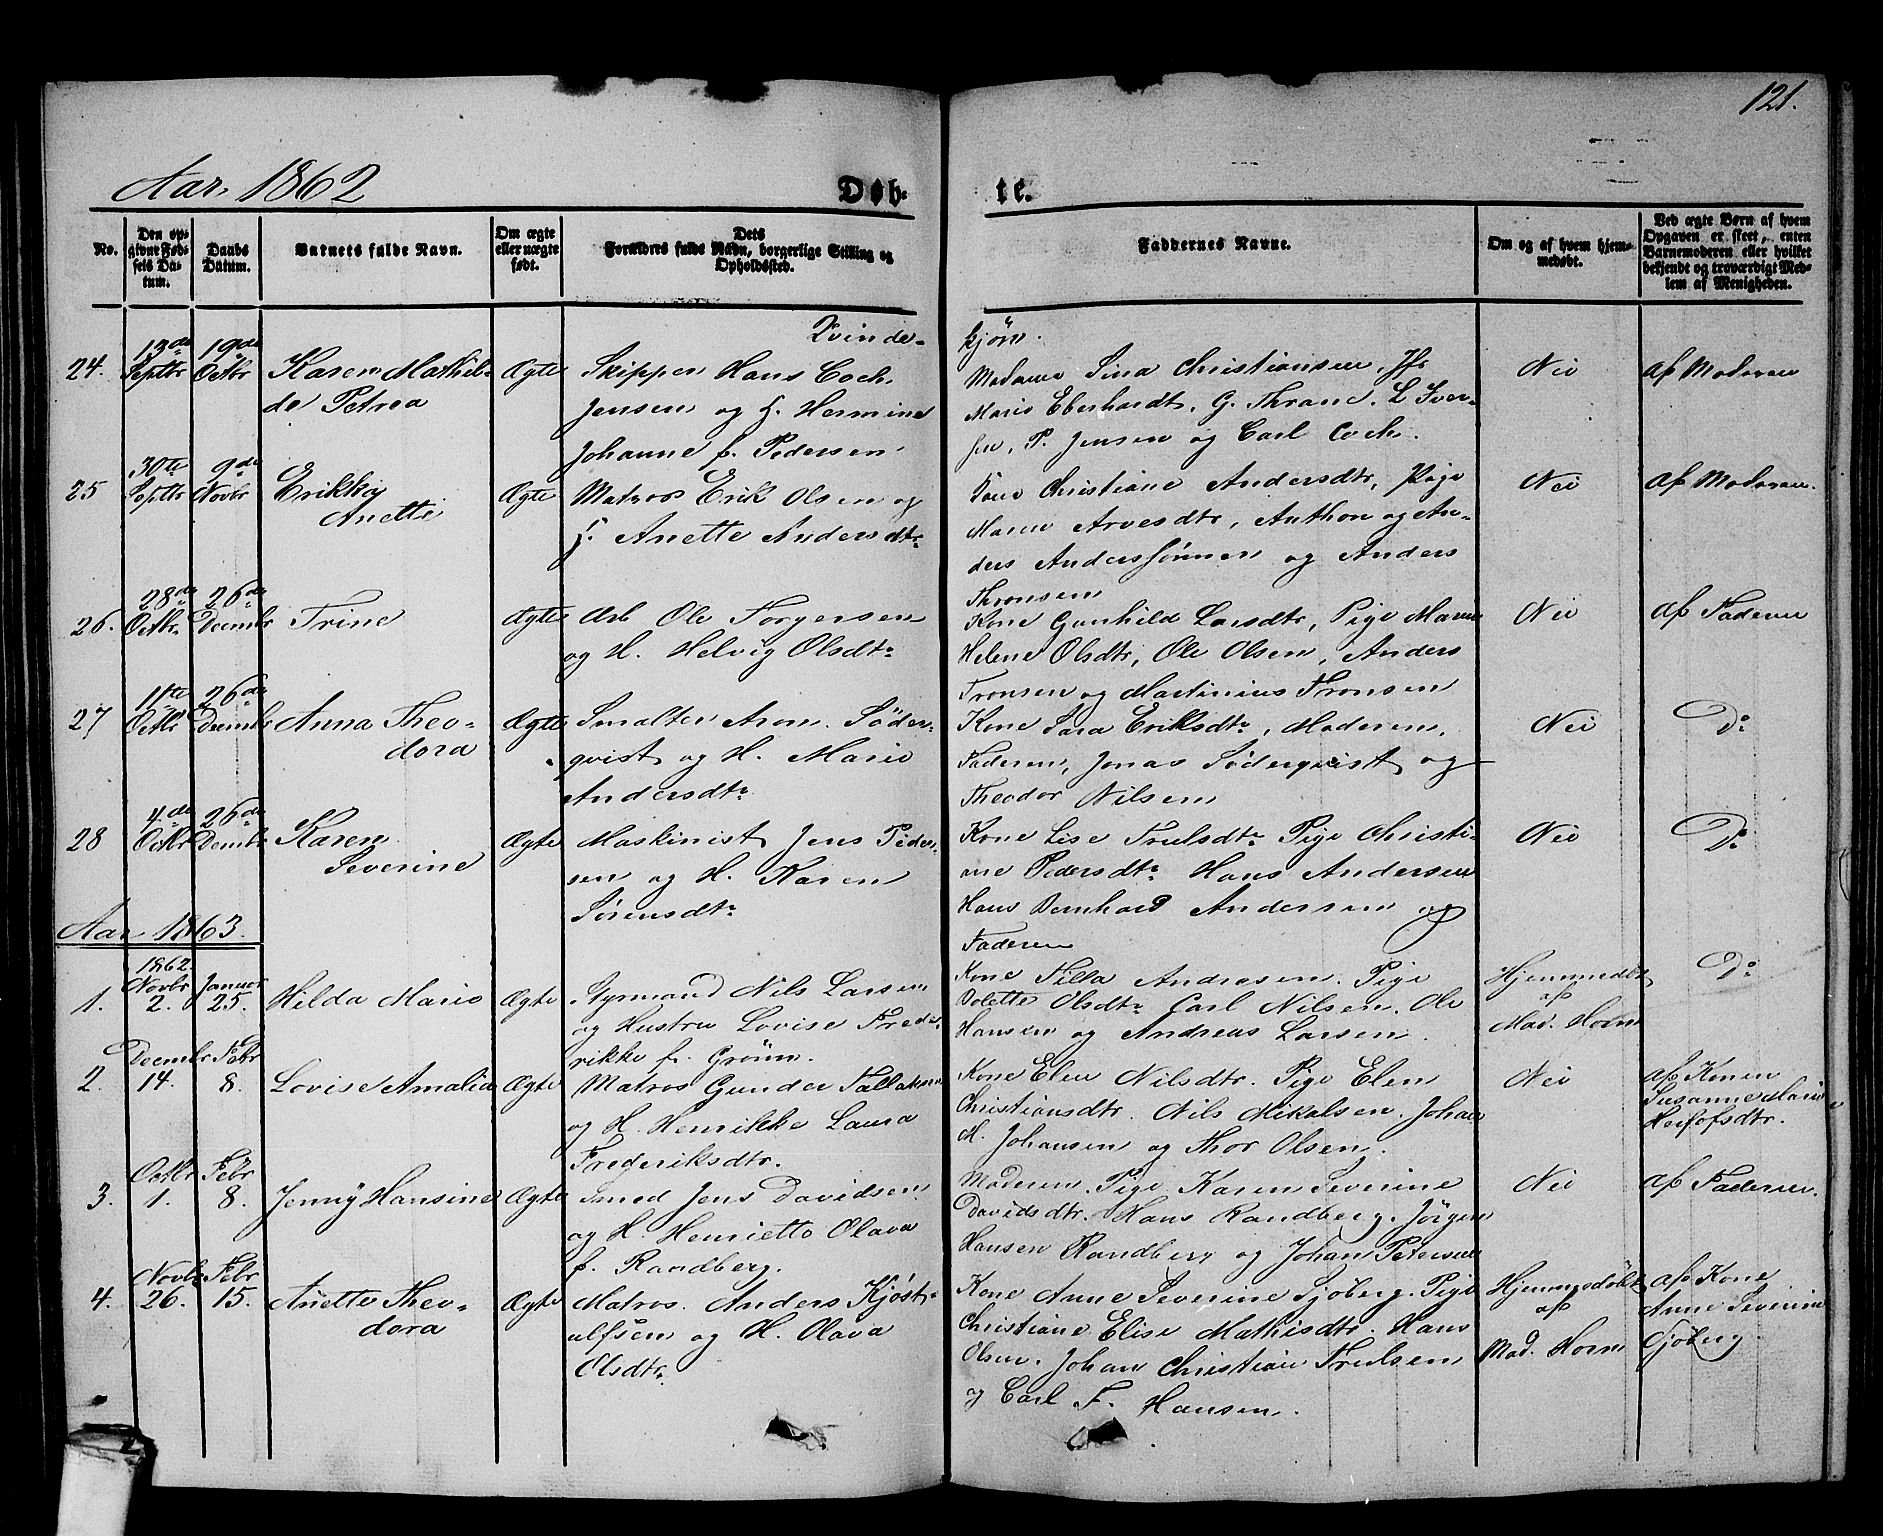 121.
Aar 1862
Døb-
te.
No.
Den op-
givne Fød-
sels Da-
tum.
Daabs
Datum.
Barnets fulde Navn.
Om ægte
eller uægte
født.
Dets
Forældres fulde Navn, borgerlige Stilling og
Opholdssted.
Faddernes Navne.
Om og af hvem hjem-
medøbt.
Ved ægte Børn af hvem
Opgaven er skeet, enten
Barnemoderen eller hvilket
bekjendt og troværdigt Med-
lem af Menigheden.
Qvinde-
kjøn.
24.
13de
Septbr
19de
Octbr
Karen Mathil-
de Petrea
Ægte
Skipper Hans Coch
Jensen og H. Hermine
Johanne f. Pedersen
Madame Sina Christiansen, Jfr
Marie Eberhardt, G. Thrane, L. Iver-
sen, P. Jensen og Carl Coch.
Nei
af Moderen
25
30te
Septbr
9de
Novbr
Erikka
Anette
Ægte
Matros Erik Olsen og
H. Anette Andersdtr
Kone Christiane Andersdtr, Pige
Maren Arvesdtr, Anthon og An-
ders Anderssønner og Anders
Thronsen
Nei
af Moderen.
26.
28de
Octbr.
26de
Decembr
Trine
Ægte
Arb Ole Torgersen
og H. Helvig Olsdtr
Kone Gunhild Larsdtr, Pige Maren
Helene Olsdtr, Ole Olsen, Anders
Tronsen og Martinius Tronsen
Nei
af Faderen
27
11te
Octbr
26de
Decembr
Anna Theo-
dora
Ægte
Smalter Aron Söder-
qvist og H. Marie
Andersdtr
Kone Sara Eriksdtr, Moderen,
Faderen, Jonas Söderqvist og
Theodor Nilsen
Nei
Do
28
4de
Octbr
26de
Decmbr
Karen
Severine
Ægte
Maskinist Jens Peder-
sen og H. Karen
Sörensdtr
Kone Lise Trulsdtr Pige Christi-
ane Pedersdtr Hans Andersen
Hans Bernhard Andersen og
Faderen
Nei
Do
Aar 1863.
1.
1862.
Novbr
2.
Januar
25.
Hilda Marie
Ægte
Styrmand Nils Larsen
og Hustru Lovise Frede-
rikke f. Grönn.
Kone Tilla Andrasen. Pige
Volette Olsdtr Carl Nilsen. Ole
Hansen og Andreas Larsen.
Hjemmedöbt
af
Mad. Horn
Do
2.
Decembr
14.
Febr
8.
Lovise Amalia
Ægte
Matros Gunder Tallaksen
og H. Henrikke Laura
Frederiksdtr.
Kone Elen Nilsdtr. Pige Elen
Christiansdtr. Nils Mikalsen. Johan
M. Johansen og Thor Olsen.
Nei
af Konen
Susanne Marie
3.
Octbr
1.
Febr
8.
Jenny Hansine
Ægte
Smed Jens Davidsen
og H. Henriette Olava
f. Randberg.
Moderen. Pige Karen Severine
Davidsdtr. Hans Randberg. Jörgen
Hansen Randberg og Johan Petersen
Nei
af Faderen.
4.
Novbr
26.
Febr
15.
Anette Theo-
dora
Ægte
Matros. Anders Kjöst-
ulfsen og H. Olava
Olsdtr
Kone Anne Severine Sjöberg. Pige
Christiane Elise Mathisdtr. Hans
Olsen. Johan Christian Trulsen
og Carl F. Hansen.
Hjemmedöbt
af
Mad. Horn
af Kone
Anne Severine
Sjöberg.